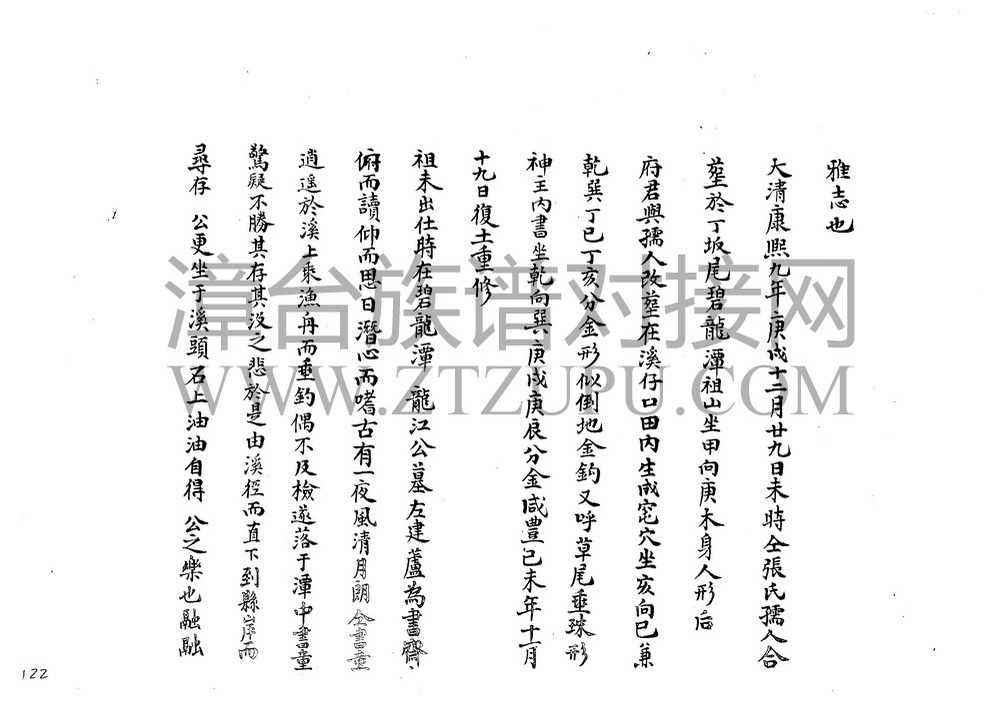 雅志也
大清康熙九年庚戌十二月廿九日未時仝張氏孺人合
塟於丁坂尾碧龍潭祖山坐甲向庚木身人形后
府君與孺人改塟在溪仔口田内生成窀穴坐亥向巳兼
乾巽丁巳丁亥分金形似倒地金鈎又呼草尾垂珠形
神主内書坐乾向巽庚戌庚辰分金咸豊己未年十一月
十九日復土重修
祖未出仕時在碧龍潭 龍江公墓左建蘆為書齋、
俯而讀仰而思日潛心而嗜古有一夜風清月朗仝書童
逍遥於溪上乘漁舟而垂釣偶不及檢遂落于潭中書童
驚疑不勝其存其没之悲於是由溪徑而直下到縣岸而
尋存 公更坐于溪頭石上油油自得 公之樂也融融
122
漳台族谱对接网
WWW.ZTZUPU.COM